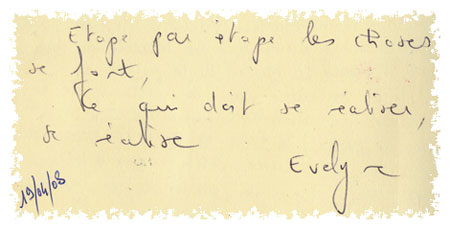 Etape par étape les choses
se font,
Ce qui doit se réaliser,
se réalise
Evelyne
19/04/08